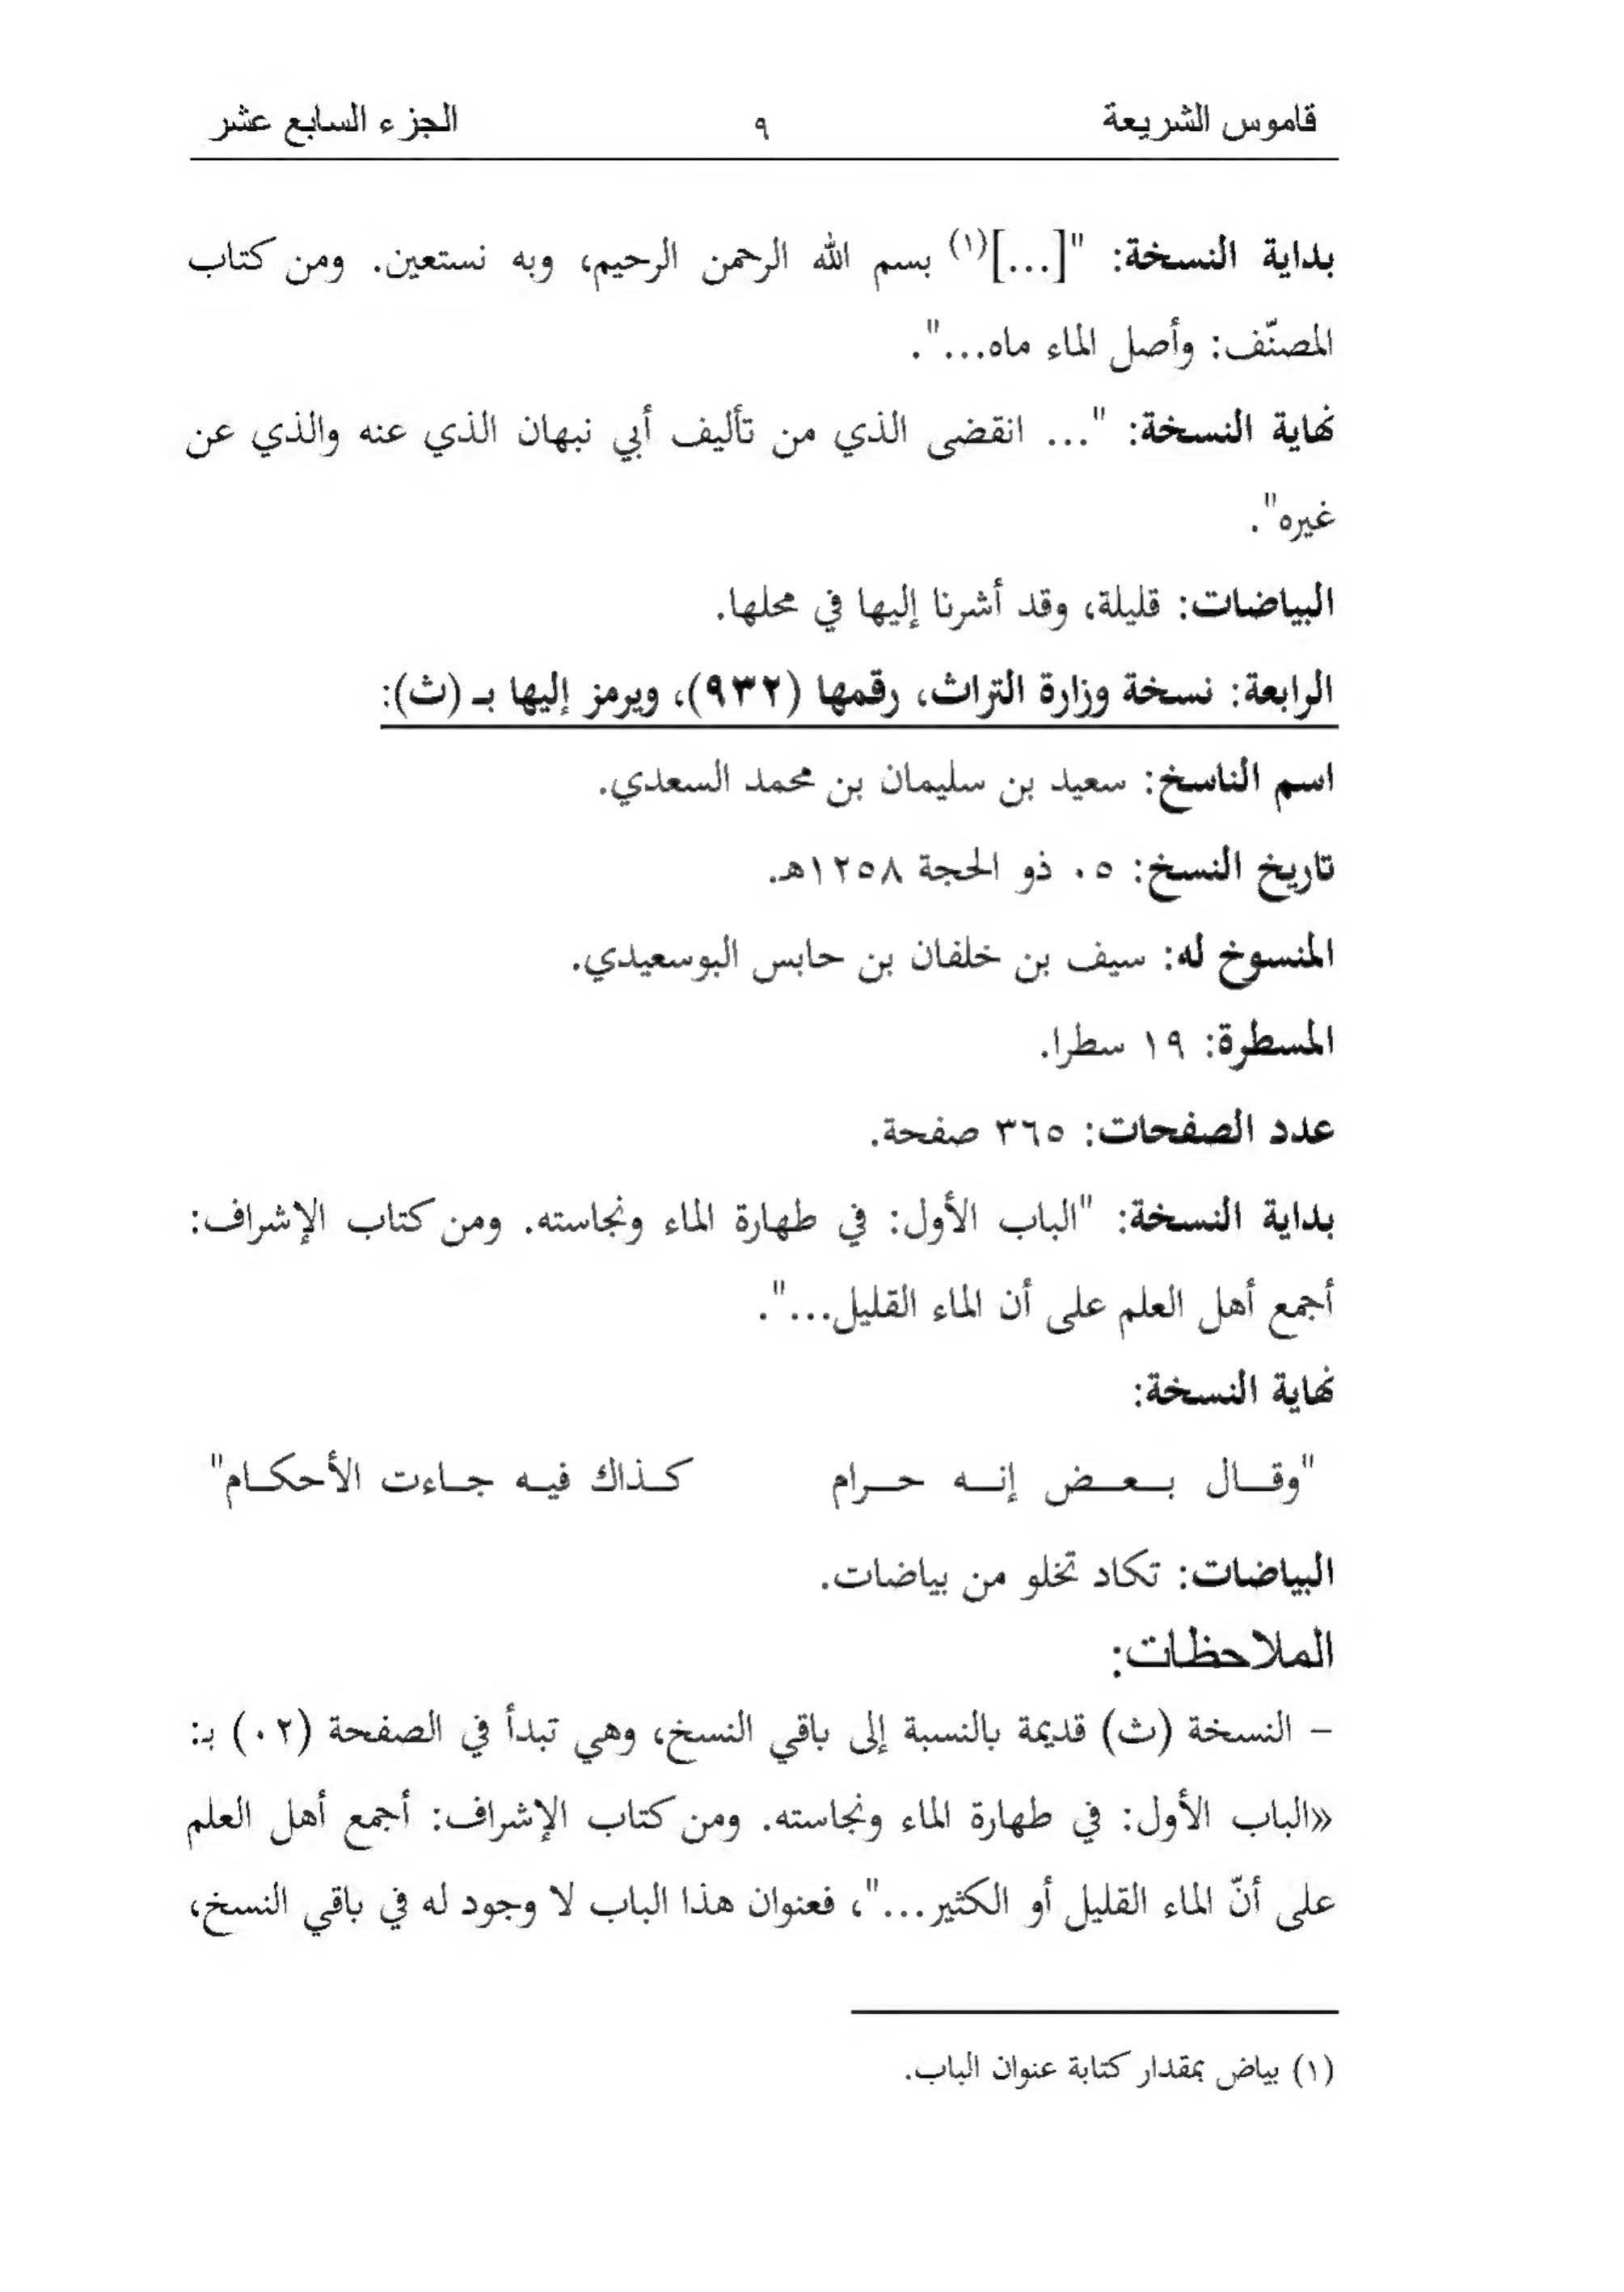 قاموس الشريعة ٩ الجزء السابع عشر
بداية النسخة: "[...](١) بسم الله الرحمن الرحيم، وبه نستعين. ومن كتاب
المصنّف: وأصل الماء ماه...".
نهاية النسخة: "... انقضى الذي من تأليف أبي نبهان الذي عنه والذي عن
غيره".
البياضات: قليلة، وقد أشرنا إليها في محلها.
الرابعة: نسخة وزارة التراث، رقمها (٩٣٢)، ويرمز إليها بـ (ث):
اسم الناسخ: سعيد بن سليمان بن محمد السعدي.
تاريخ النسخ: ٠٥ ذو الحجة ١٢٥٨هـ.
المنسوخ له: سيف بن خلفان بن حابس البوسعيدي.
المسطرة: ١٩ سطرا.
عدد الصفحات: ٣٦٥ صفحة.
بداية النسخة: "الباب الأول: في طهارة الماء ونجاسته. ومن كتاب الإشراف:
أجمع أهل العلم على أن الماء القليل...".
نهاية النسخة:
"وقـال بـعـض إنـه حـرام كـذاك فيـه جـاءت الأحكـام"
البياضات: تكاد تخلو من بياضات.
الملاحظات:
- النسخة (ث) قديمة بالنسبة إلى باقي النسخ، وهي تبدأ في الصفحة (٠٢) بـ:
«الباب الأول: في طهارة الماء ونجاسته. ومن كتاب الإشراف: أجمع أهل العلم
على أنّ الماء القليل أو الكثير..."، فعنوان هذا الباب لا وجود له في باقي النسخ،
(١) بياض بمقدار كتابة عنوان الباب.